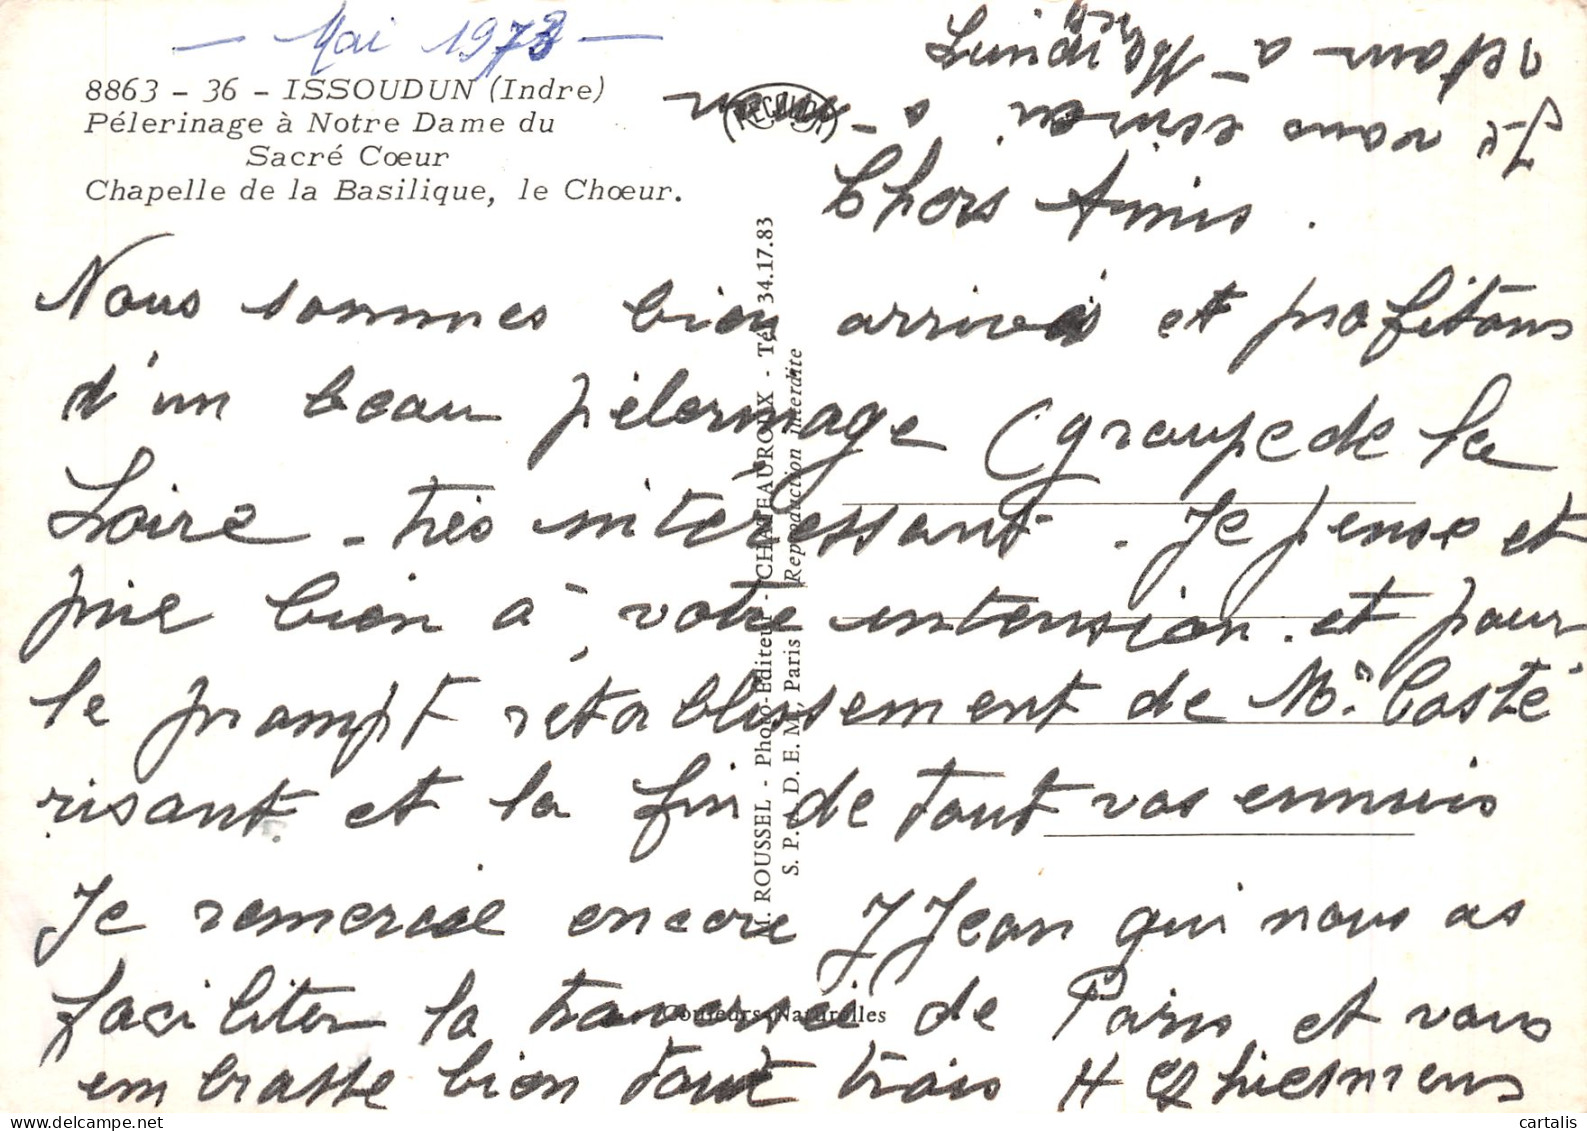 — Mai 1973 —
8863 - 36 - ISSOUDUN (Indre)
Pélerinage à Notre Dame du
Sacré Cœur
Chapelle de la Basilique, le Chœur.
Chers Amis.
Nous sommes bien arrivés et profitons
d'un beau pélerinage (groupe de la
Loire - très intéressant. Je pense et
prie bien à votre intension. et pour
le prompt rétablissement de Mr Costé
risant et la fin de tout vos ennuis
Je remercie encore J Jean qui nous as
faciliter la traversée de Paris et vous
embrasse bien tout trois H
Je vous écrirai à mon
retour à Lundi
M. ROUSSEL - Photo-Editeur - CHATEAUROUX - Tél. 34.17.83
S. P. A. D. E. M., Paris Reproduction interdite
Couleurs Naturelles
cartalis